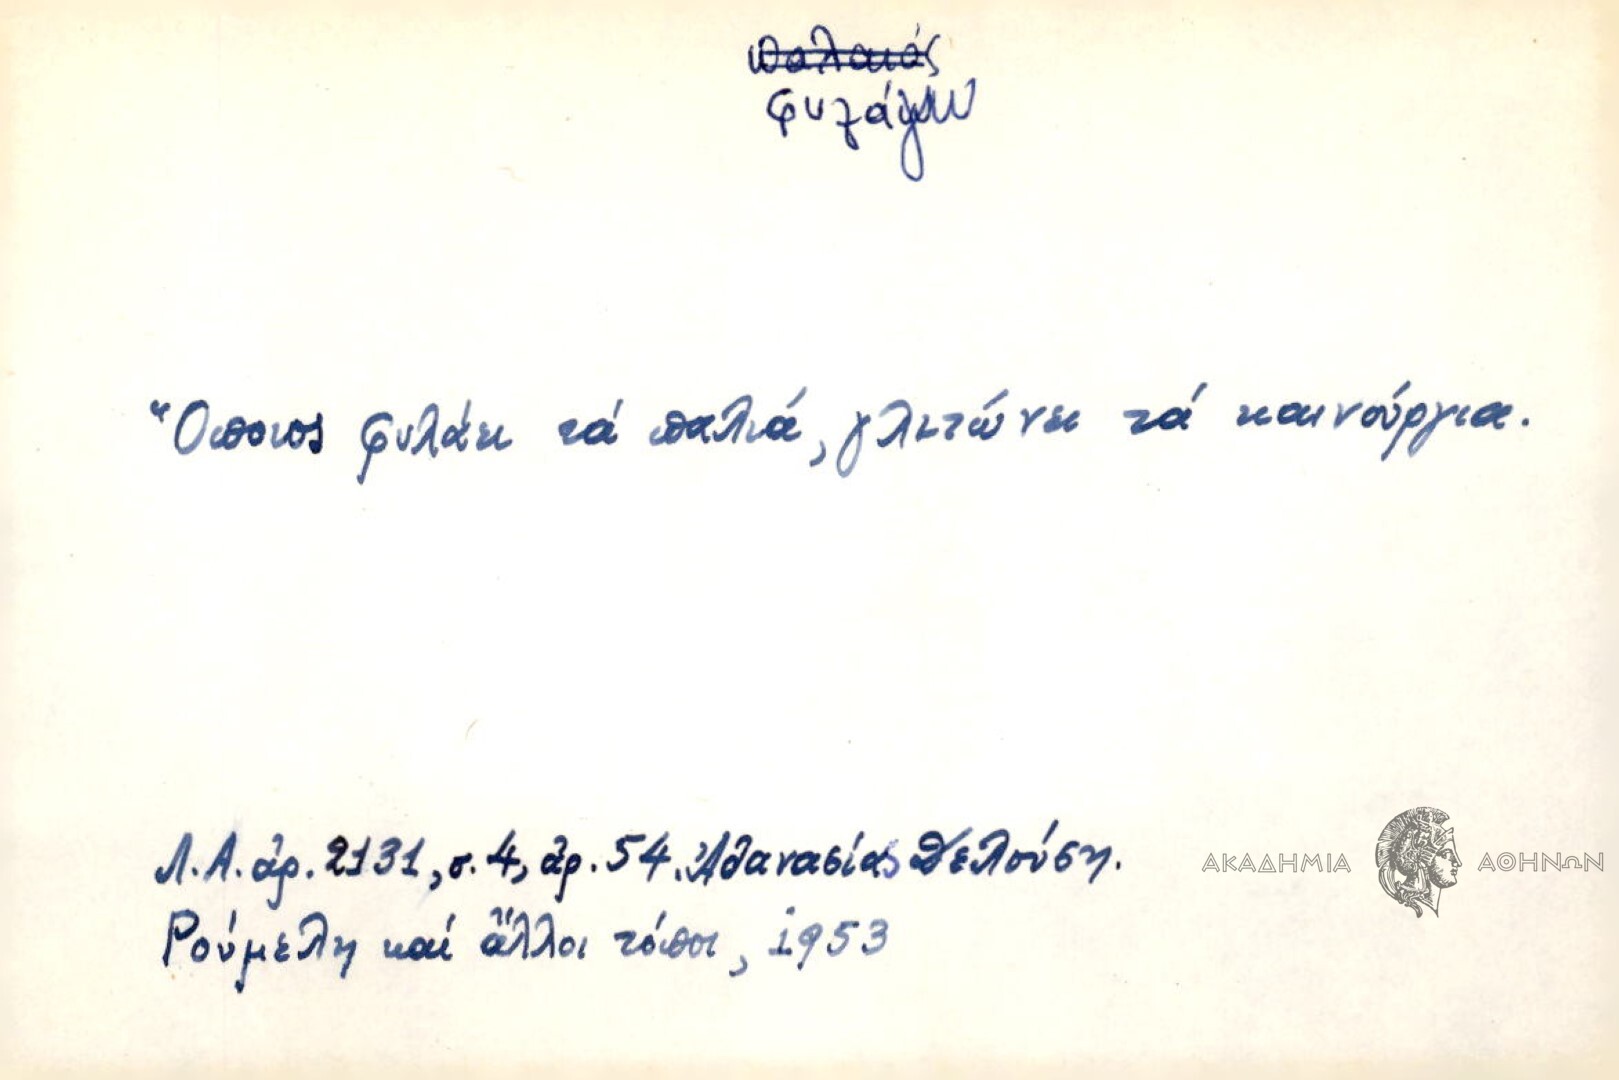 παλαιός
φυλάγω
Ὅποιος φυλάει τά παλιά, γλιτώνει τά καινούργια.
Λ.Α. ἀρ. 2131, σ. 4, ἀρ. 54. Ἀθανασίας Δελούση.
Ρούμελη καί ἄλλοι τόποι, 1953
ΑΚΑΔΗΜΙΑ ΑΘΗΝΩΝ